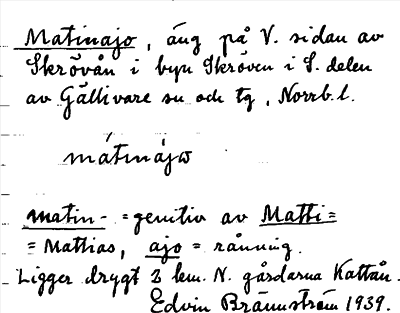 Matinajo, äng på V. sidan av
Skrövån i byn Skröven i S. delen
av Gällivare sn och tg, Norrb. l.
mátinájω
matin- = genitiv av Matti =
= Mattias, ajo = rånning.
Ligger drygt 2 km. N. gårdarna Kattån.
Edvin Brännström 1939.